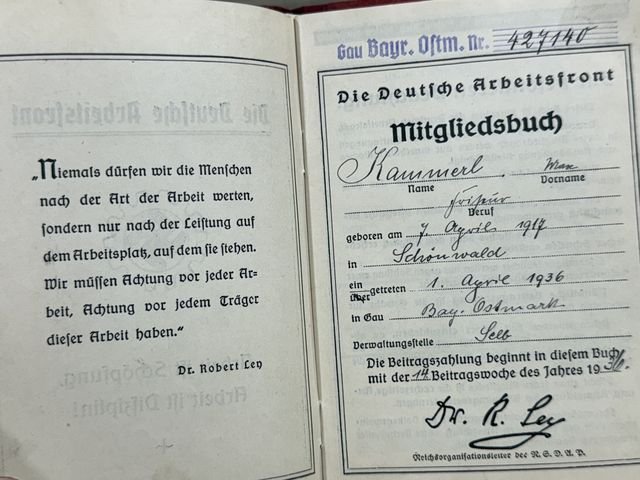 „Niemals dürfen wir die Menschen
nach der Art der Arbeit werten,
sondern nur nach der Leistung auf
dem Arbeitsplatz, auf dem sie stehen.
Wir müssen Achtung vor jeder Ar-
beit, Achtung vor jedem Träger
dieser Arbeit haben.“
Dr. Robert Ley
Gau Bayr. Ostm. Nr. 427140
Die Deutsche Arbeitsfront
Mitgliedsbuch
Kammerl Max
Name Vorname
Friseur
Beruf
geboren am 7. April 1917
in Schönwald
ein
über getreten 1. April 1936
in Gau Bay. Ostmark
Verwaltungsstelle Selb
Die Beitragszahlung beginnt in diesem Buch
mit der 14 Beitragswoche des Jahres 19
Dr. R. Ley
Reichsorganisationsleiter der N.S.D.A.P.